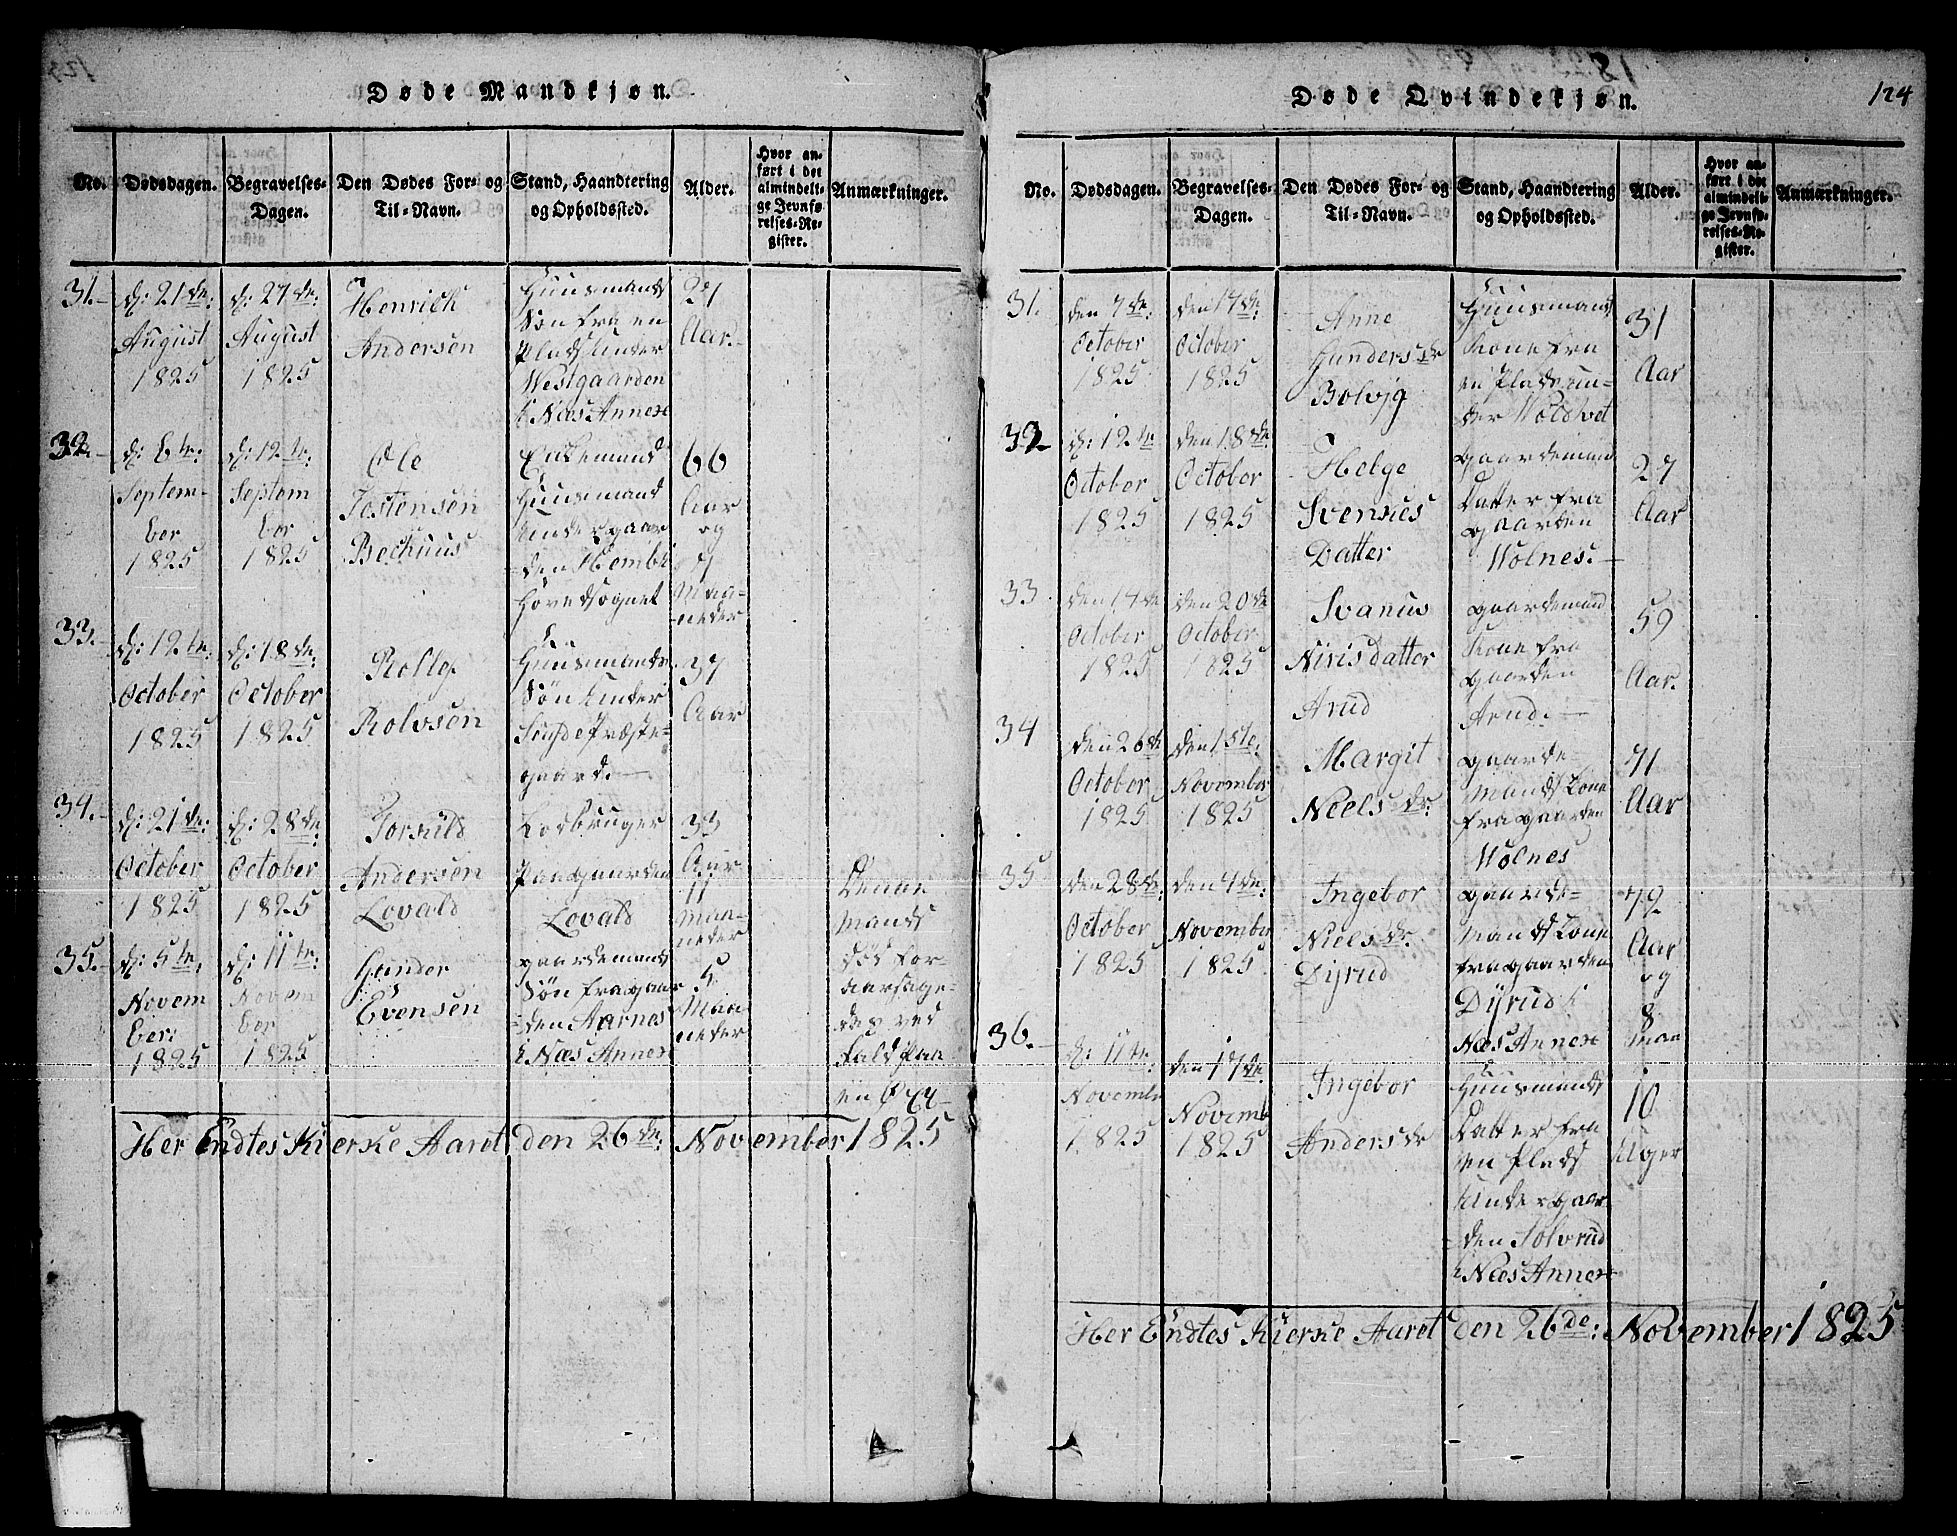 123
Døde Mandkjøn.
No.
Dødsdagen.
Begravelses-
Dagen.
Den Dødes For- og
Til-Navn.
Stand, Haandtering
og Opholdssted.
Alder.
Hvor an-
ført i det
almindeli-
ge Jevnfø-
relses-Re-
gister.
Anmærkninger.
31.
d: 21 de:
August
1825
d: 27 de:
August
1825
Henrich
Andersen
Huusmands
Søn fra en
Plads under
Westgaarden
i Næs Annex
27
Aar.
32.
d: 6 te:
Septem-
ber
1825
d: 12 te:
Septem
ber
1825
Ole
Jestensen
Bechuus
Enkemand
Huusmand
under gaar
den
Hovedsognet
66
Aar
og
7
Maa-
neder
33.
d: 12 te:
October
1825
d: 18 de:
October
1825
Rolle
Rolvsen
En
Huusmands
Søn under
Præste-
gaard.
37
Aar
34.
d: 21 de:
October
1825
d: 28 de
October
1825
Andersen
Lovald
Lodbruger
paa gaarden
Lovald
33
Aar
11
Maa-
neder
Denne
Mands
død for-
aarsage-
des ved
fald paa
en
35.
d: 5 te,
Novem
ber:
1825
d: 11 te:
Novem
ber
1825
Gunder
Evensen
gaardemands
Søn fra gaar
den Aarnes
i Næs Annex
5
Maa
neder
Her Endtes Kierke Aaret den 26 de: November 1825
124
Døde Qvindekjøn.
No.
Dødsdagen.
Begravelses-
Dagen.
Den Dødes For- og
Til-Navn.
Stand, Haandtering
og Opholdssted.
Alder.
Hvor an-
ført i det
almindeli-
ge Jevnfø-
relses-Re-
gister.
Anmærkninger.
31.
den 7 de:
October
1825
den 17 de:
October
1825
Anne
Gunders dr
Bolvig
Huusmands
Kone fra
en Plads un-
der
31
Aar
32
d: 12 te
October
1825
den 18 de:
October
1825
Helge
Svensies
Datter
gaardemand
Datter fra
gaarden
Wolnes.
27
Aar
33
den 17 de
October
1825
den 20 de
October
1825
Svanus
Nirisdatter
Arud
gaardemand
Kone fra
gaarden
Arud.
59
Aar.
34
den 26 de
October
1825
den 1 ste:
November
1825
Margit
Neels dr:
gaarde-
mands Kone
fra gaarden
Wolnes
71
Aar
35
den 28 de:
October
1825
den 4 de:
November
1825
Ingebor
Niels dr.
Dijrud
gaarde-
mands Kone
fra gaarden
Dijrud i
Næs Annex
72
Aar
og
8
Maa
36.
d: 11 te:
Novembr
1825
den 17 de:
Novemb
1825
Ingebor
Anders dr
Huusmands
Datter fra
en Plads
under gaar
den Solvrud
i Næs Annex
10
Uger
Her Endtes Kierke Aaret den 26 de: November 1825